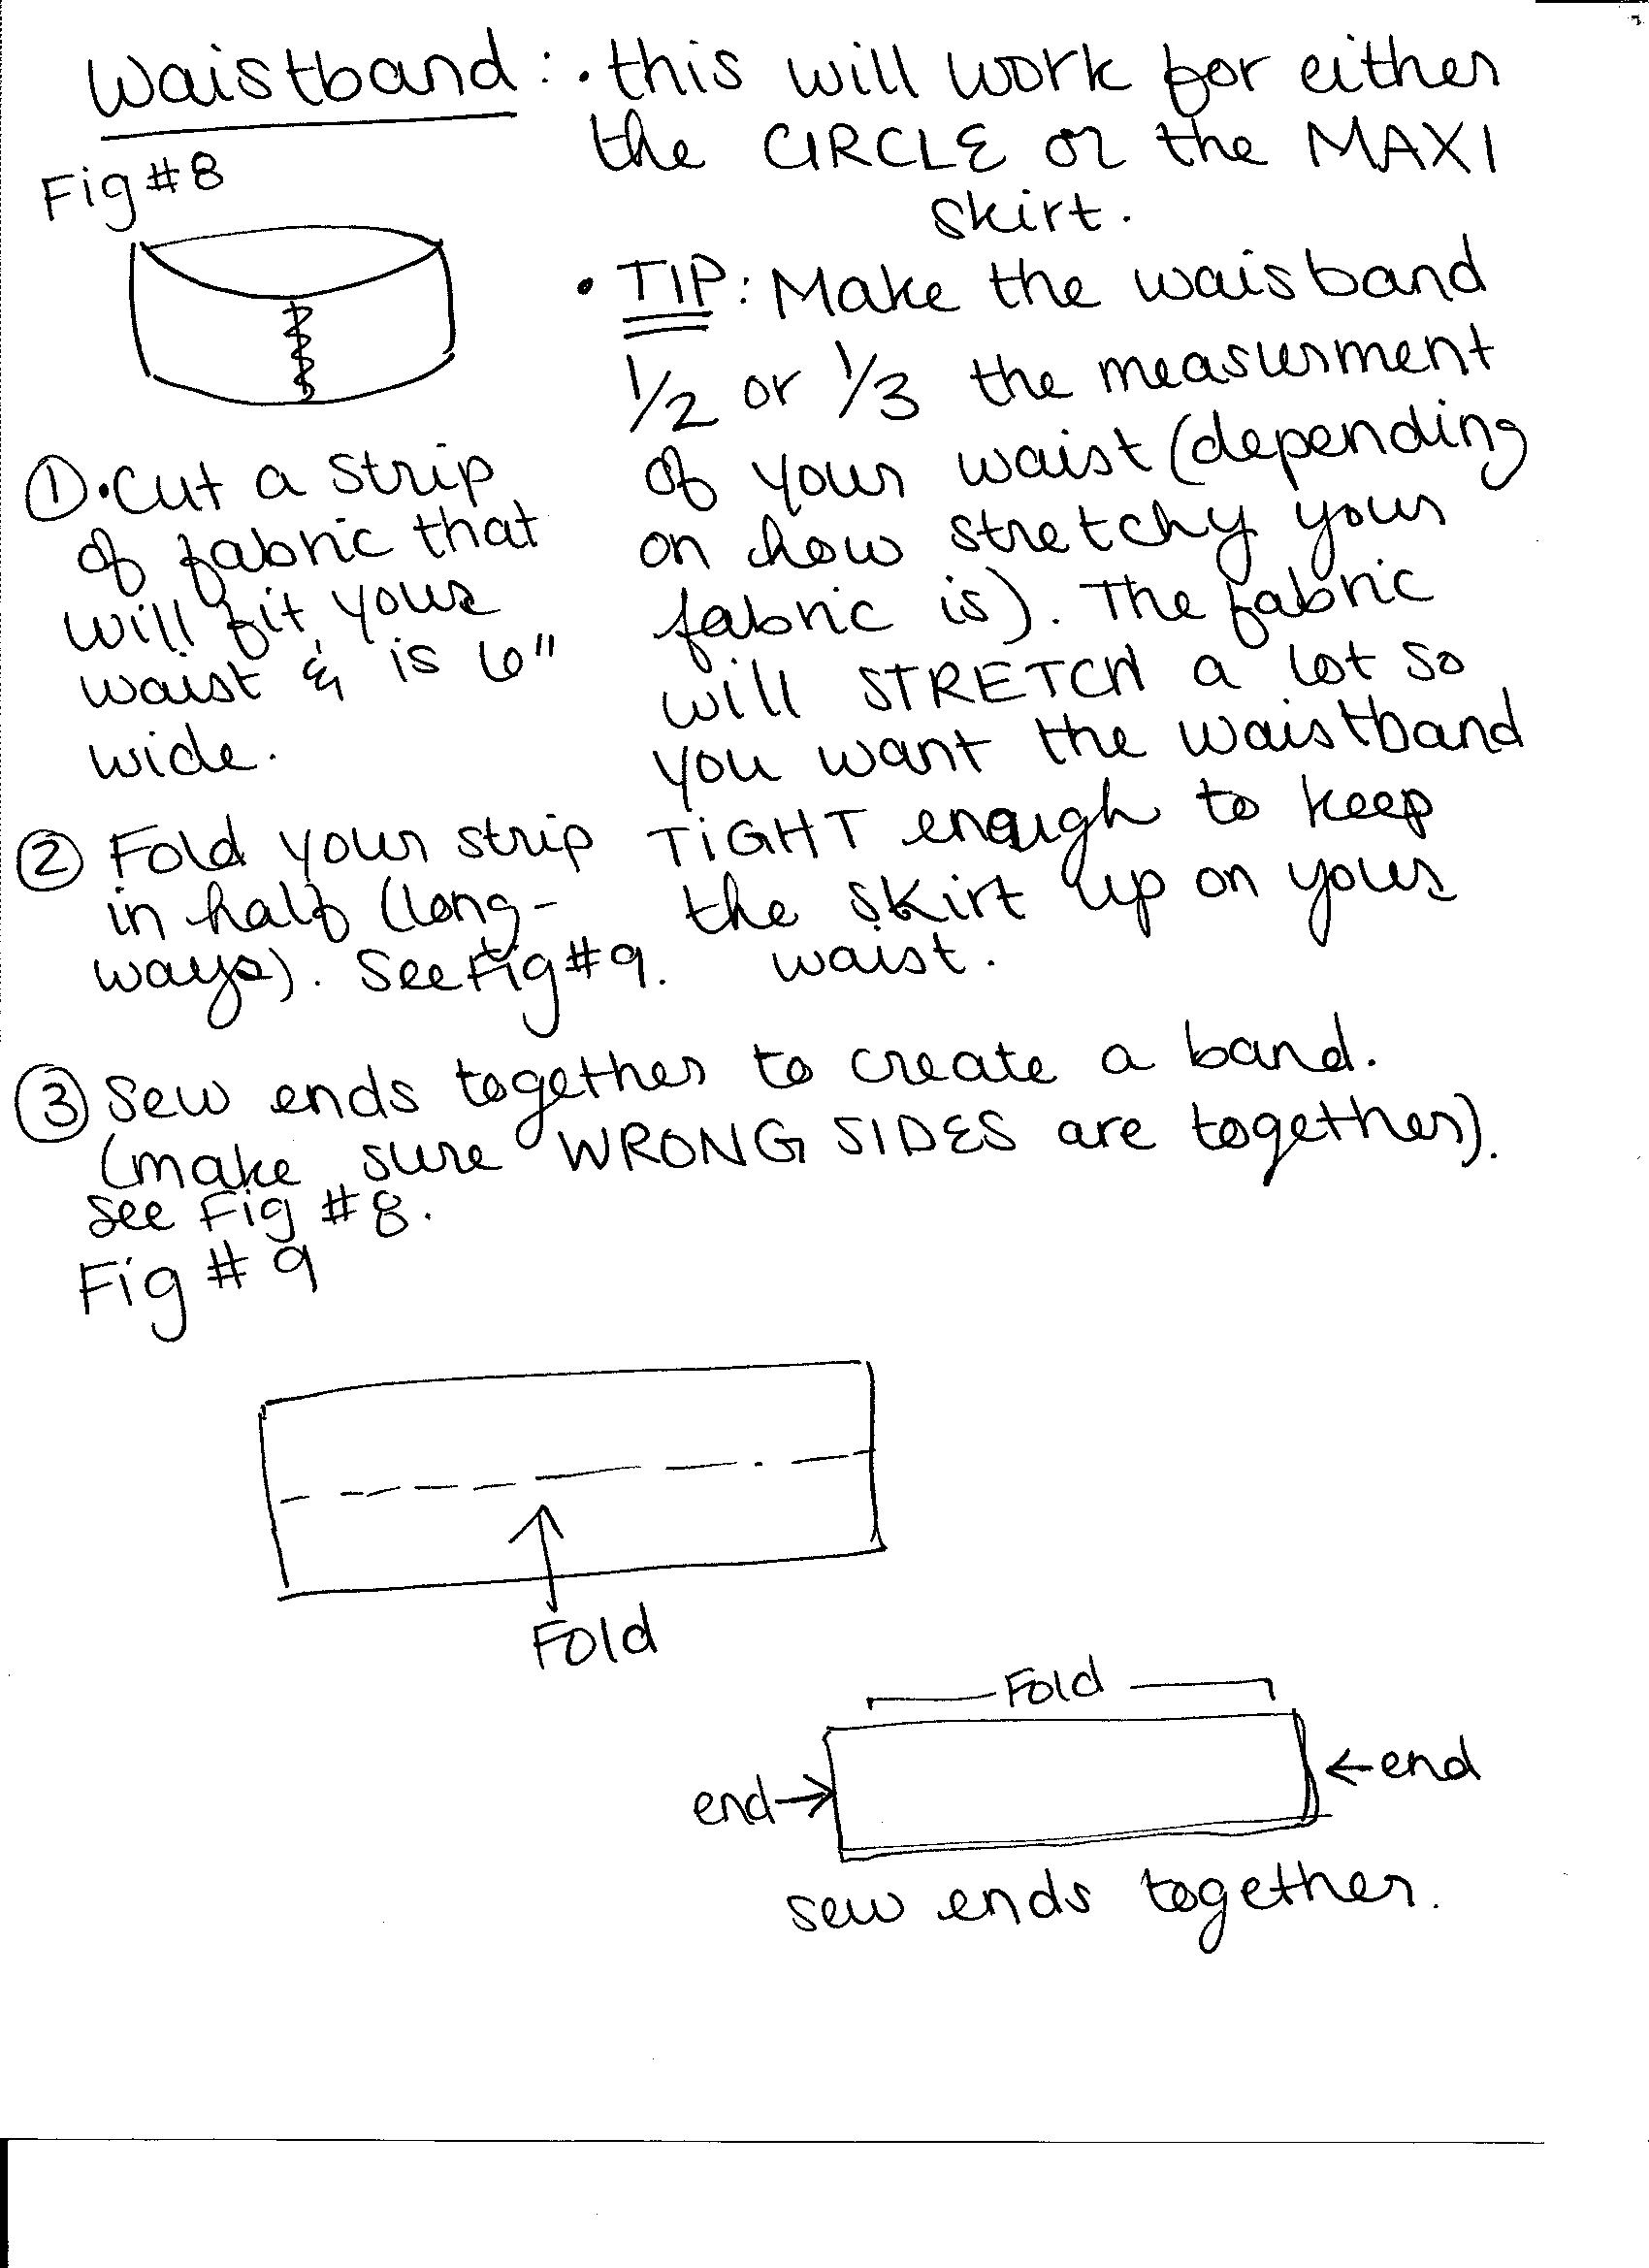 Waistband: • this will work for either
the CIRCLE or the MAXI
skirt.
Fig #8
• TIP: Make the waisband
1/2 or 1/3 the measurment
of your waist (depending
on how stretchy your
fabric is). The fabric
will STRETCH a lot so
you want the waistband
TIGHT enough to keep
the skirt up on your
waist.
① • Cut a strip
of fabric that
will fit your
waist & is 6"
wide.
② Fold your strip
in half (long-
ways). See Fig #9.
③ Sew ends together to create a band.
(make sure WRONG SIDES are together).
See Fig #8.
Fig #9
Fold
Fold
end
end
sew ends together.